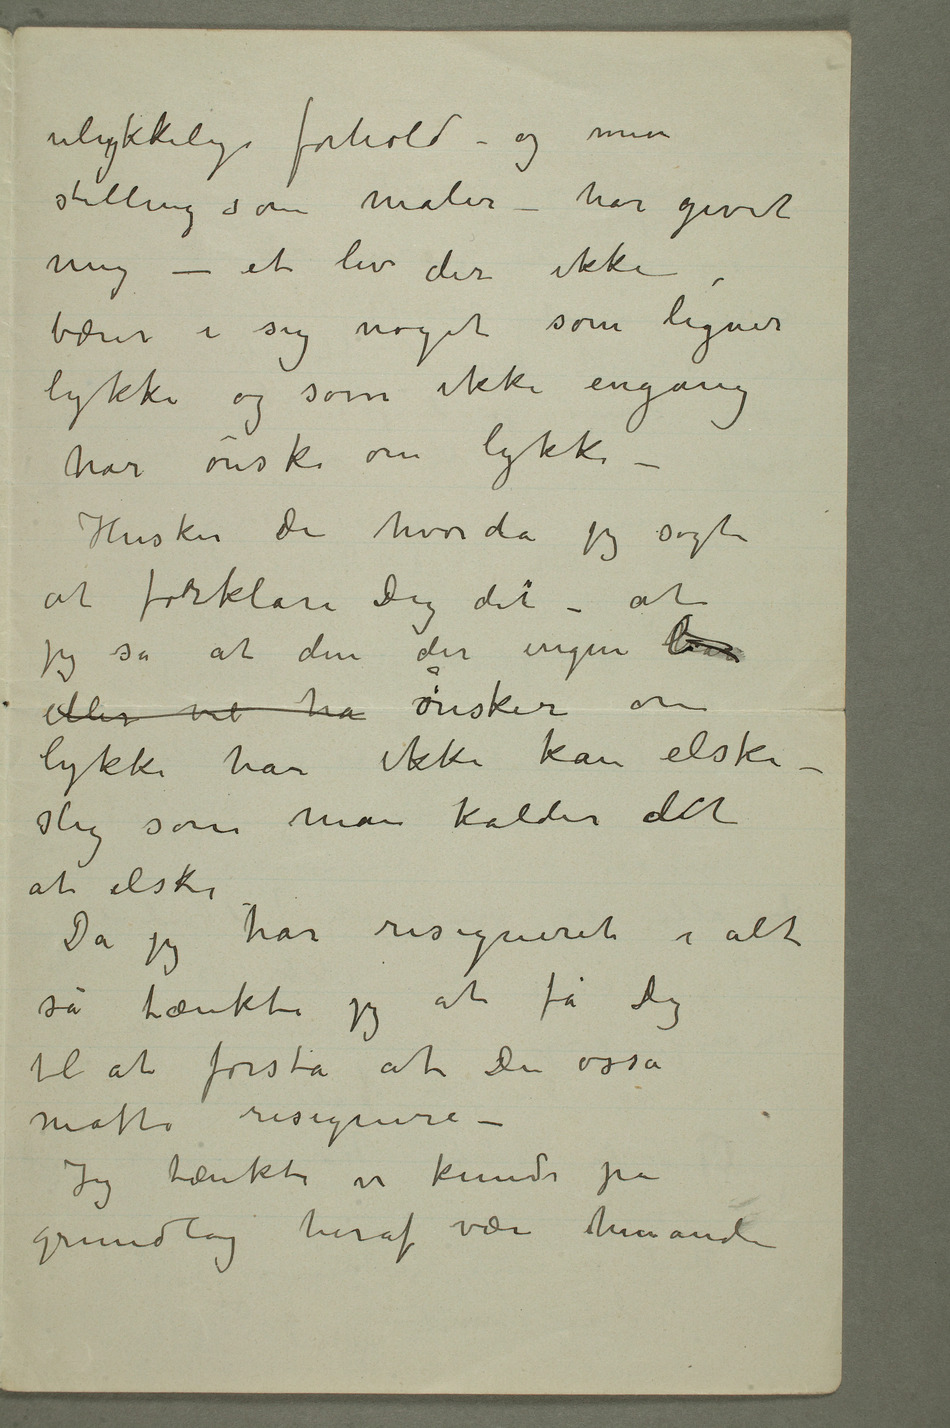 ulykkelige forhold – og min
stilling som maler – har givet
mig – et liv der ikke
bærer i sig noget som ligner
lykke og som ikke engang
har ønske om lykke –
Husker Du hvorda jeg søgte
at forklare Dig det – at
jeg sa at den der ingen
eller vil ha ønsker om
lykke har ikke kan elske –
slig som man kalder det
at elske
Da jeg har resigneret i alt
så tænkte jeg at få Dig
til at forstå at Du osså
måtte resignere –
Jeg tænkte vi kunde på
grundlag heraf være hinanden